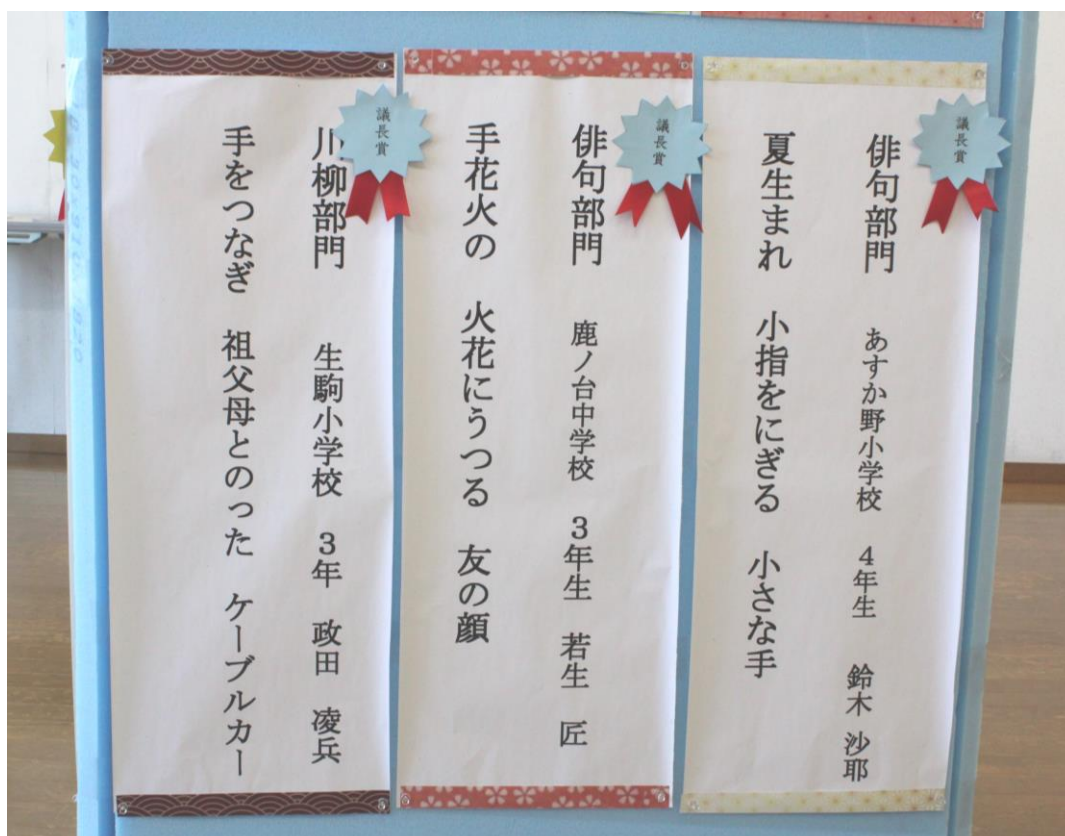 議長賞
俳句部門 あすか野小学校 4年生 鈴木 沙耶
夏生まれ 小指をにぎる 小さな手
議長賞
俳句部門 鹿ノ台中学校 3年生 若生 匠
手花火の 火花にうつる 友の顔
議長賞
川柳部門 生駒小学校 3年 政田 凌兵
手をつなぎ 祖父母とのった ケーブルカー